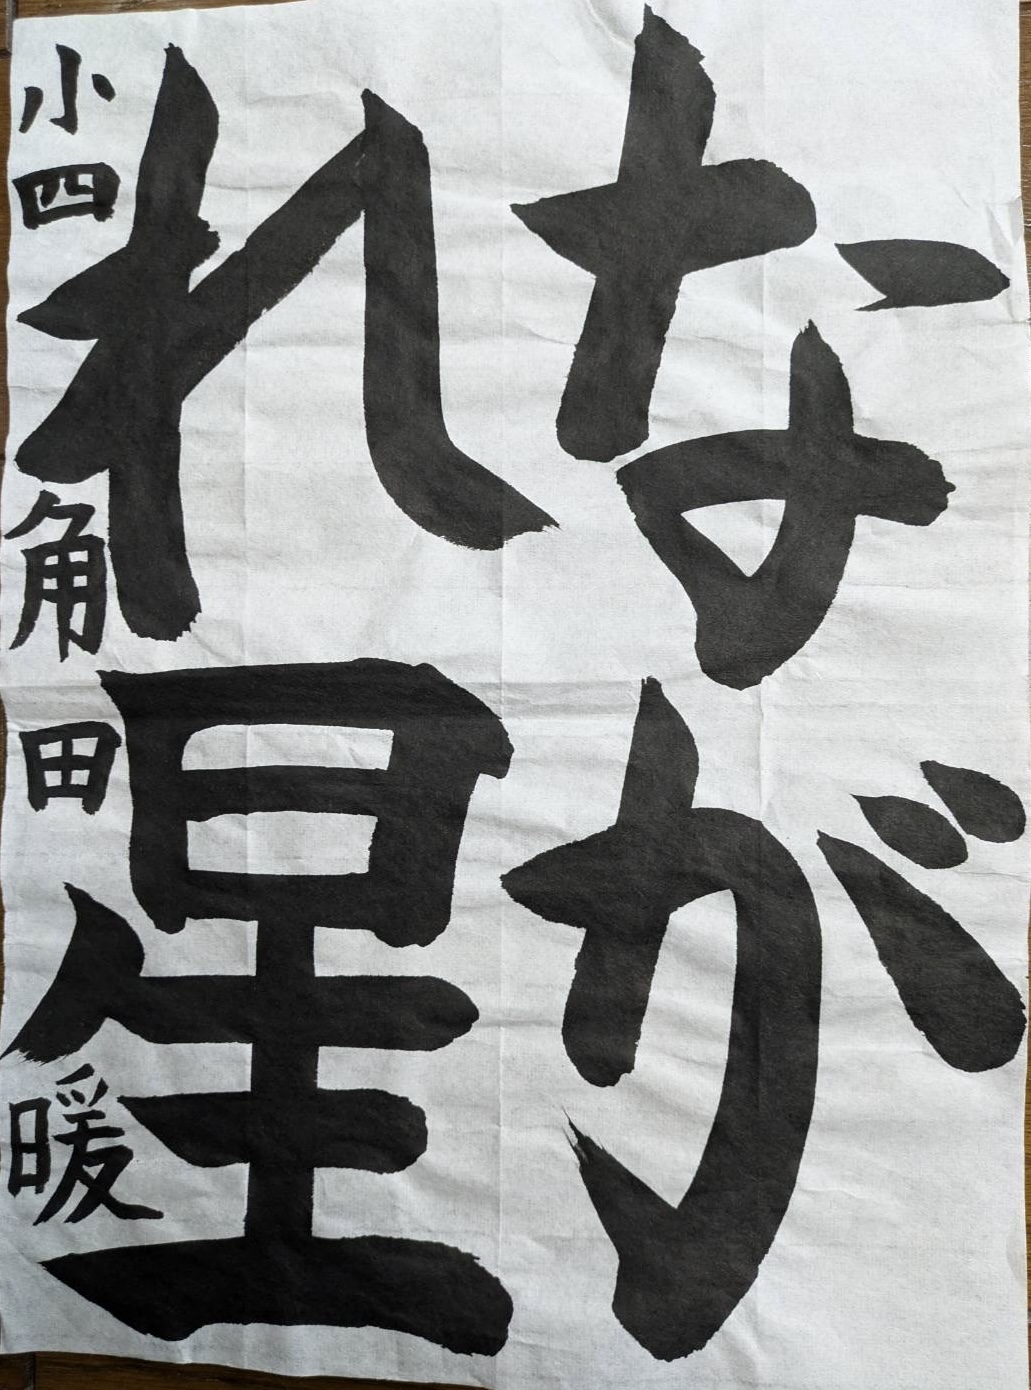 なが
れ星
小四 角田 暖